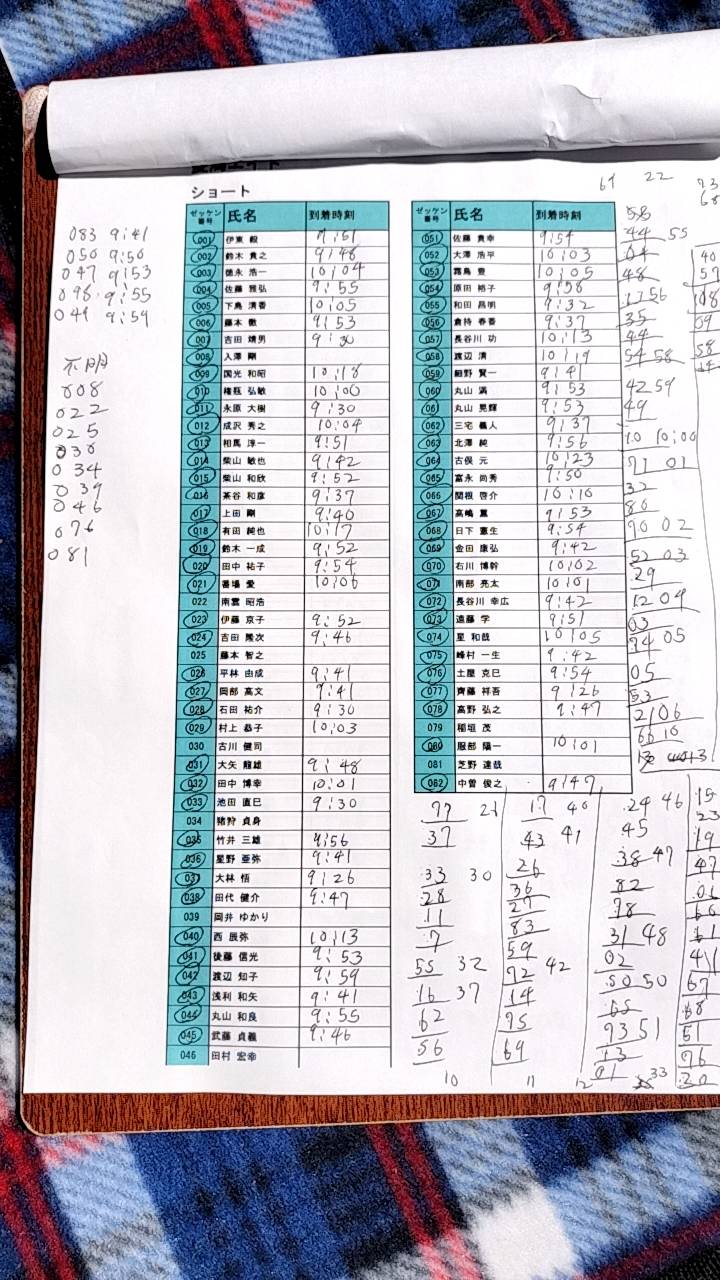 ショート
ゼッケン番号 氏名 到着時刻
001 伊東 毅 9:51
002 鈴木 貴之 9:48
003 徳永 浩一 10:04
004 佐藤 雅弘 9:55
005 下鳥 清香 10:05
006 藤本 徹 9:53
007 吉田 靖男 9:30
008 入澤 剛
009 国光 和昭 10:18
010 権瓶 弘敏 10:00
011 永原 大樹 9:30
012 成沢 秀之 10:04
013 相馬 淳一 9:51
014 柴山 敏也 9:42
015 柴山 和欣 9:52
016 茶谷 和彦 9:37
017 上田 剛 9:40
018 有田 純也 10:17
019 鈴木 一成 9:52
020 田中 祐子 9:54
021 番場 愛 10:06
022 南雲 昭浩
023 伊藤 京子 9:52
024 吉田 隆次 9:46
025 藤本 智之
026 平林 由成 9:41
027 岡部 高文 9:41
028 石田 祐介 9:30
029 村上 恭子 10:03
030 古川 健司
031 大矢 龍雄 9:48
032 田中 博幸 10:01
033 池田 直巳 9:30
034 猪狩 貞身
035 竹井 三雄 9:56
036 星野 亜弥 9:41
037 大林 悟 9:26
038 田代 健介 9:47
039 岡井 ゆかり
040 西 辰弥 10:13
041 後藤 信光 9:53
042 渡辺 知子 9:59
043 浅利 和矢 9:41
044 丸山 和良 9:55
045 武藤 貞義 9:46
046 田村 宏幸
ゼッケン番号 氏名 到着時刻
051 佐藤 貴幸 9:54
052 大澤 浩平 10:03
053 霧鳥 豊 10:05
054 原田 裕子 9:58
055 和田 昌明 9:32
056 倉持 春香 9:37
057 長谷川 功 10:13
058 渡辺 清 10:19
059 細野 賢一 9:41
060 丸山 満 9:53
061 丸山 晃輝 9:53
062 三宅 義人 9:37
063 北澤 純 9:56
064 古俣 元 10:23
065 富永 尚秀 9:50
066 関根 啓介 10:10
067 高嶋 薫 9:53
068 日下 憲生 9:54
069 金田 康弘 9:42
070 右川 博幹 10:02
071 南部 亮太 10:01
072 長谷川 幸広 9:42
073 遠藤 学 9:51
074 星 和哉 10:05
075 峰村 一生 9:42
076 土屋 克巳 9:54
077 齊藤 祥吾 9:26
078 高野 弘之 9:47
079 稲垣 茂
080 服部 陽一 10:01
081 芝野 達哉
082 中曽 俊之 9:47
083 9:41
050 9:50
047 9:53
098 9:55
049 9:59
不明
008
022
025
030
034
039
046
076
081
69 22
44 55
04
48
17 56
35
44
54 58
42 59
49
10 10:00
71 01
32
80
90 02
52 03
29
12 04
03
74 05
05
53
21 06
66 10
37
33 30
28
11
7
55 32
16 37
62
56
10
17 40
43 41
26
36
27
83
59
72 42
14
75
69
11
24 46
45
38 47
82
78
31 48
02
50 50
65
73 51
13
01
12